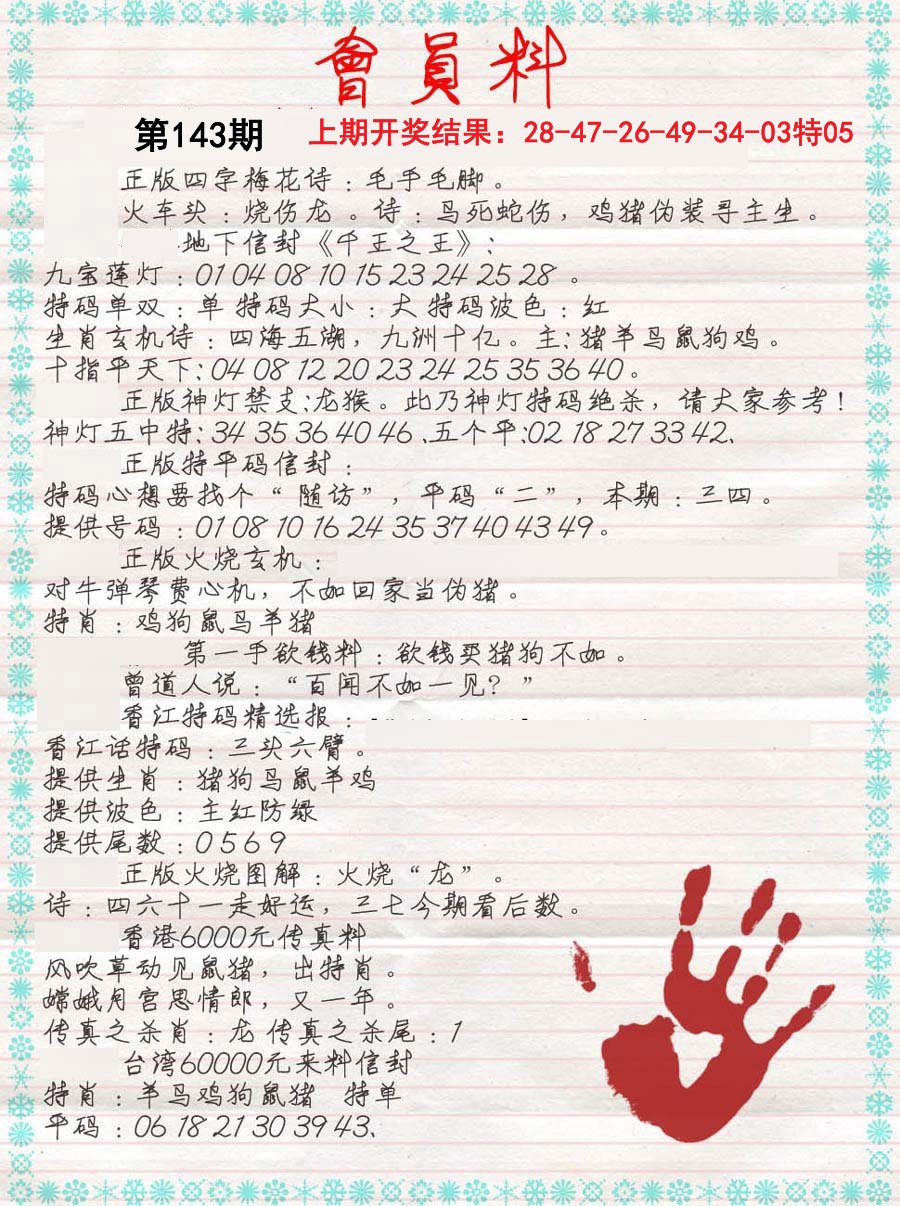 會員料
第143期 上期开奖结果：28-47-26-49-34-03特05
正版四字梅花诗：毛手毛脚。
火车头：烧伤龙。诗：鸟死蛇伤，鸡猪伪装寻主生。
地下信封《千王之王》：
九宝莲灯：01 04 08 10 15 23 24 25 28 。
特码单双：单 特码大小：大 特码波色：红
生肖玄机诗：四海五湖，九洲十亿。主：猪羊马鼠狗鸡。
十指平天下：04 08 12 20 23 24 25 35 36 40。
正版神灯禁支：龙猴。此乃神灯特码绝杀，请大家参考！
神灯五中特：34 35 36 40 46、五个平：02 18 27 33 42、
正版特平码信封：
特码心想要找个“随访”，平码“二”，本期：三四。
提供号码：01 08 10 16 24 35 37 40 43 49。
正版火烧玄机：
对牛弹琴费心机，不如回家当伪猪。
特肖：鸡狗鼠马羊猪
第一手欲钱料：欲钱买猪狗不如。
曾道人说：“百闻不如一见？”
香江特码精选报：
香江话特码：三头六臂。
提供生肖：猪狗马鼠羊鸡
提供波色：主红防绿
提供尾数：0 5 6 9
正版火烧图解：火烧“龙”。
诗：四六十一走好运，三七今期看后数。
香港6000元传真料
风吹草动见鼠猪，出特肖。
嫦娥月宫思情郎，又一年。
传真之杀肖：龙 传真之杀尾：1
台湾60000元来料信封
特肖：羊马鸡狗鼠猪 特单
平码：06 18 21 30 39 43、